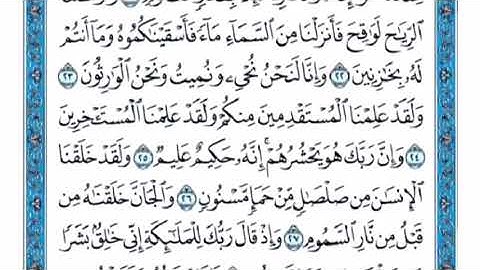 ٱلرِّيَٰحَ لَوَٰقِحَ فَأَنزَلۡنَا مِنَ ٱلسَّمَآءِ مَآءٗ فَأَسۡقَيۡنَٰكُمُوهُ وَمَآ أَنتُمۡ
لَهُۥ بِخَٰزِنِينَ ٢٢ وَإِنَّا لَنَحۡنُ نُحۡيِۦ وَنُمِيتُ وَنَحۡنُ ٱلۡوَٰرِثُونَ ٢٣
وَلَقَدۡ عَلِمۡنَا ٱلۡمُسۡتَقۡدِمِينَ مِنكُمۡ وَلَقَدۡ عَلِمۡنَا ٱلۡمُسۡتَـٔۡخِرِينَ
٢٤ وَإِنَّ رَبَّكَ هُوَ يَحۡشُرُهُمۡۚ إِنَّهُۥ حَكِيمٌ عَلِيمٞ ٢٥ وَلَقَدۡ خَلَقۡنَا
ٱلۡإِنسَٰنَ مِن صَلۡصَٰلٖ مِّنۡ حَمَإٖ مَّسۡنُونٖ ٢٦ وَٱلۡجَآنَّ خَلَقۡنَٰهُ مِن
قَبۡلُ مِن نَّارِ ٱلسَّمُومِ ٢٧ وَإِذۡ قَالَ رَبُّكَ لِلۡمَلَٰٓئِكَةِ إِنِّي خَٰلِقُۢ بَشَرٗا